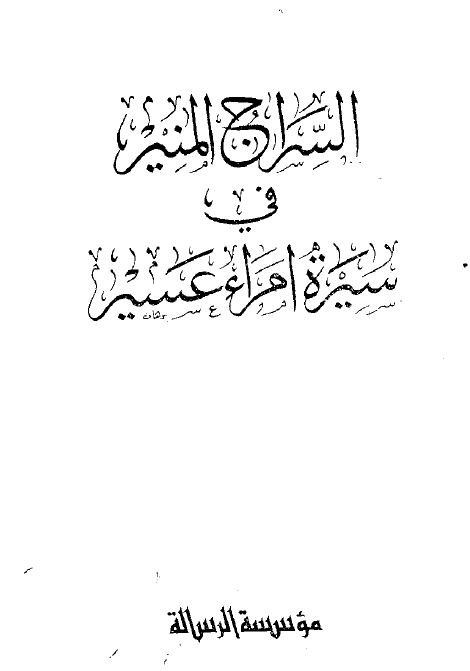 السِّرَاجُ المُنِيْر
في
سِيْرَةِ أُمَرَاءِ عَسِيْر
مؤسسة الرسالة